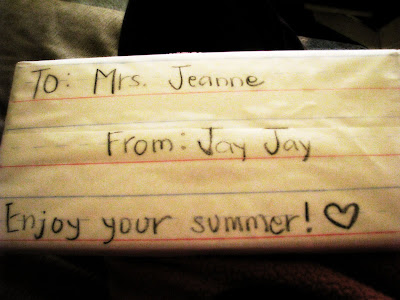 To: Mrs. Jeanne
From: Jay Jay
Enjoy your summer! ♡